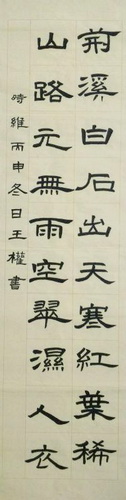 荆溪白石出天寒紅葉稀
山路元無雨空翠濕人衣
時維丙申冬日王權書